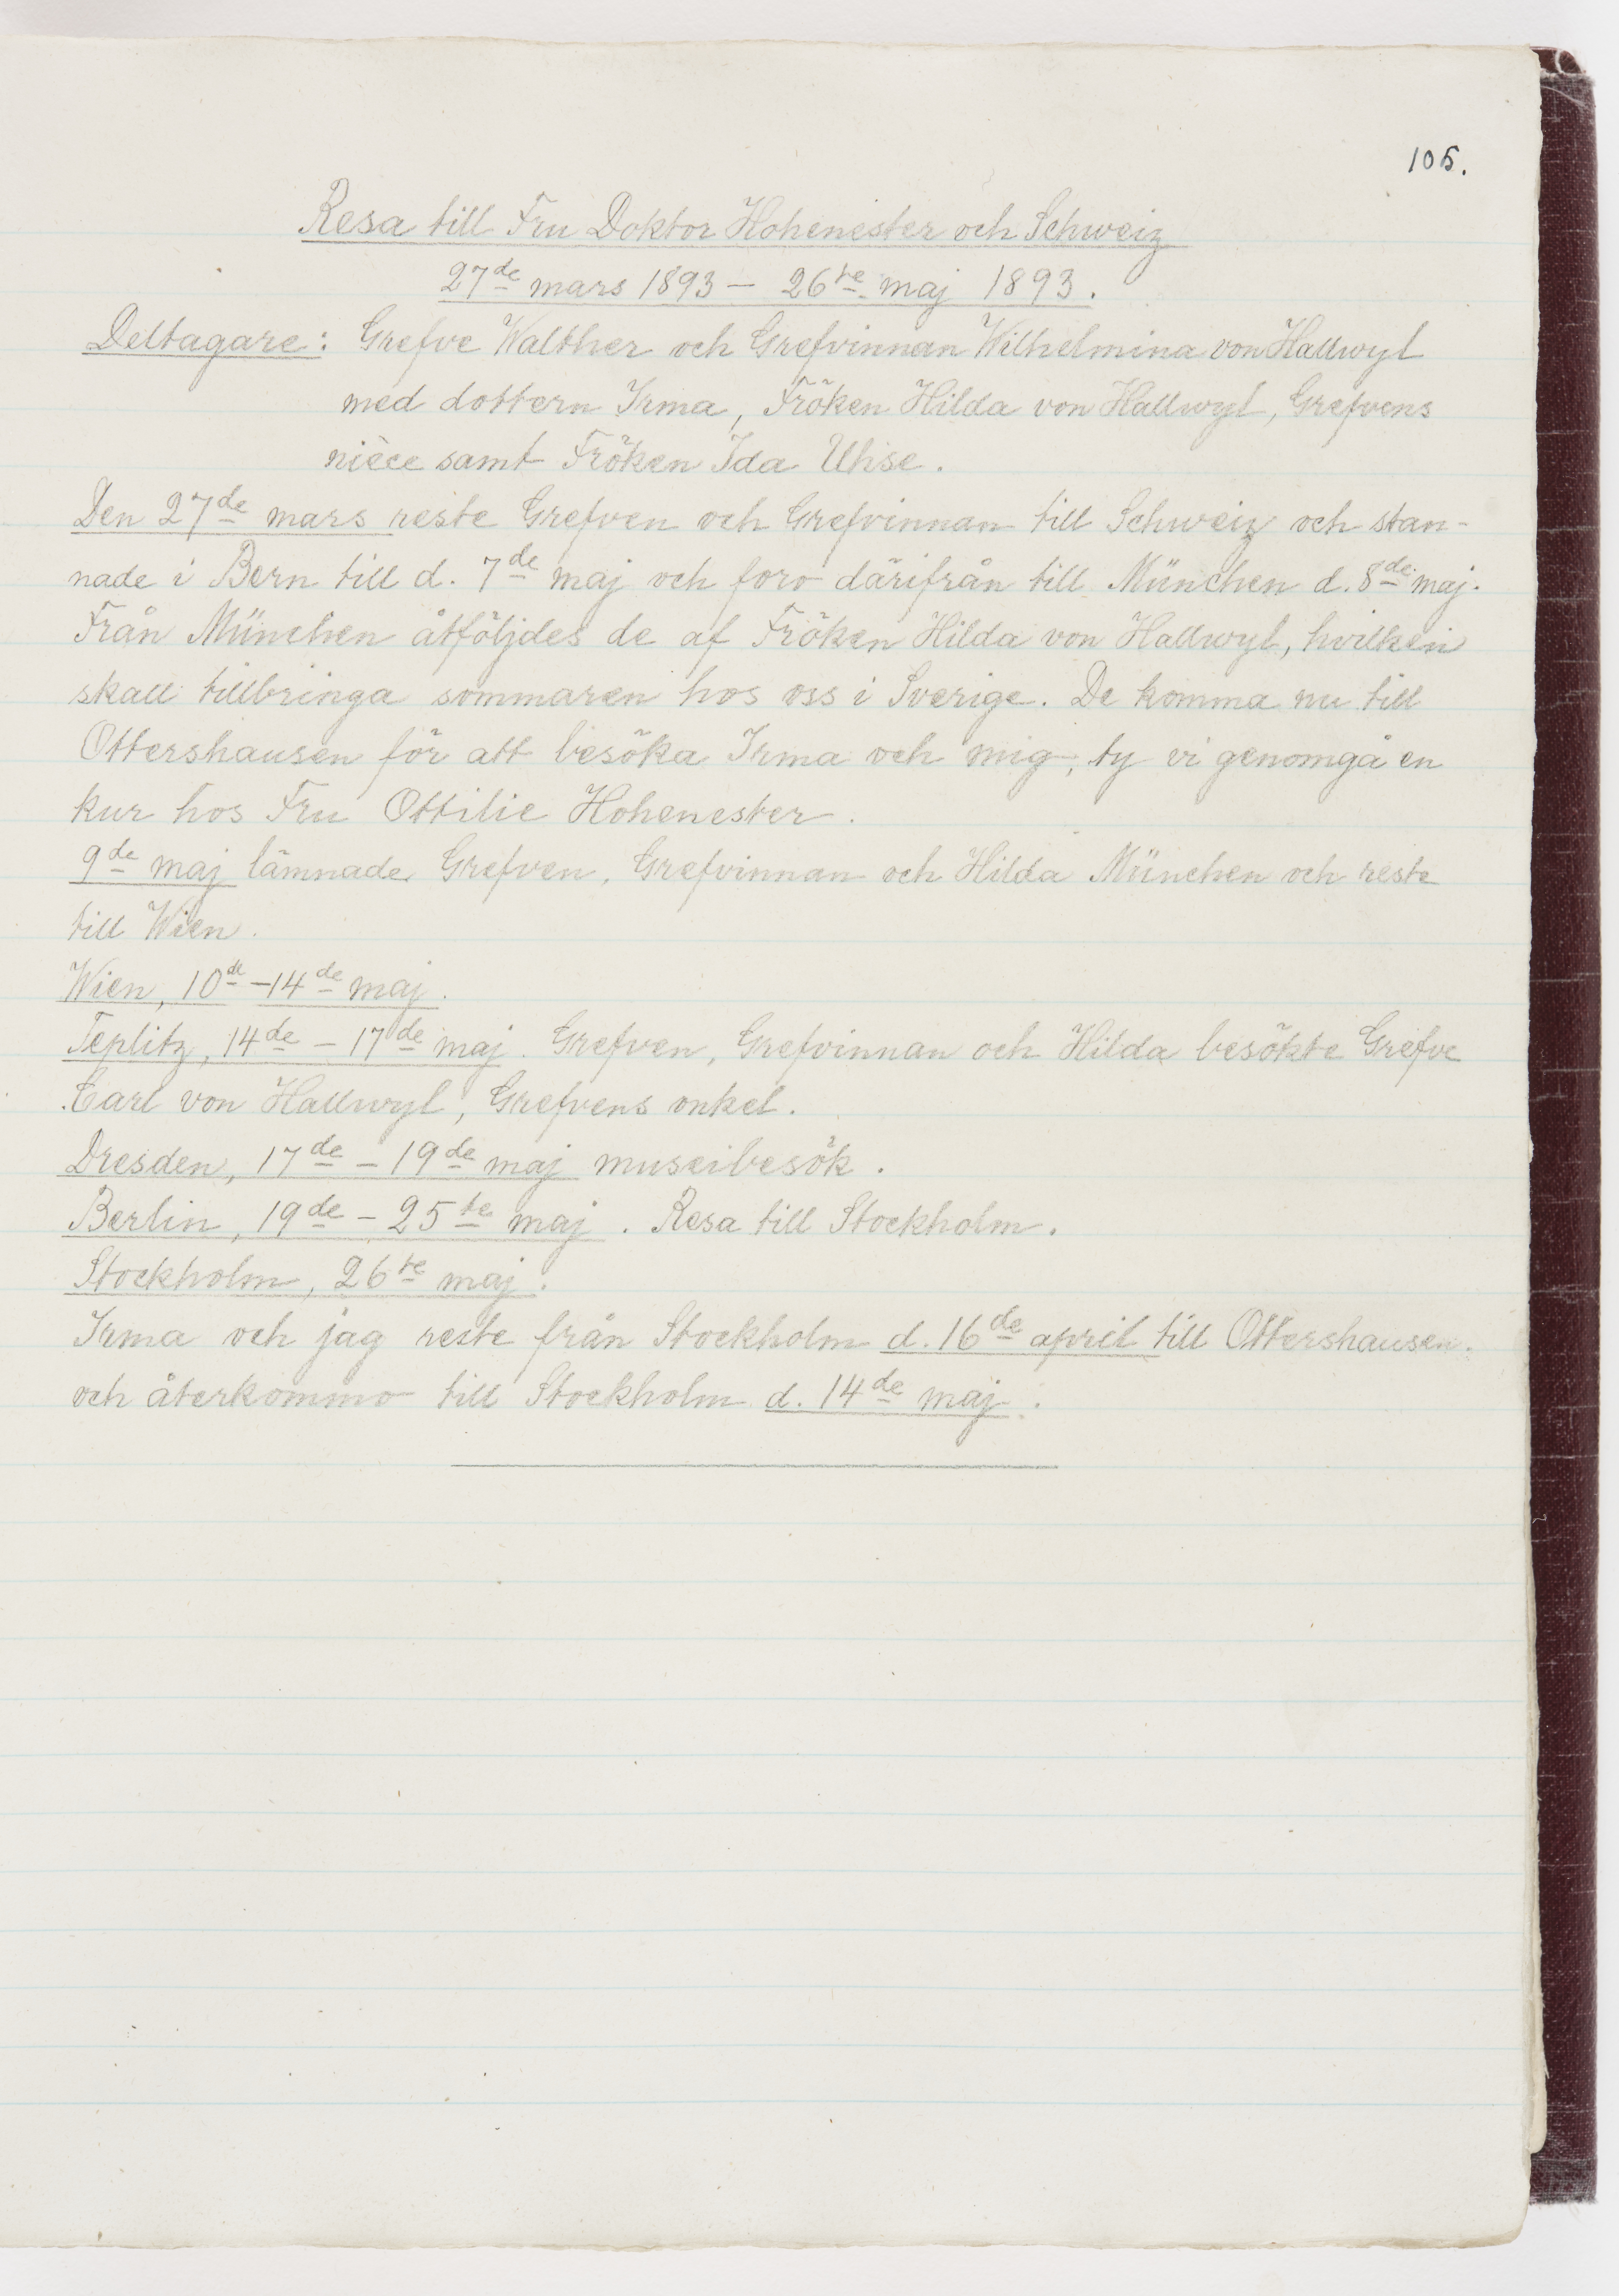 105.
Resa till Fru Doktor Hohenester och Schweiz
27de mars 1893 – 26te maj 1893.
Deltagare: Grefve Walther och Grefvinnan Wilhelmina von Hallwyl
med dottern Irma, Fröken Hilda von Hallwyl, Grefvens
nièce samt Fröken Ida Uhse.
Den 27de mars reste Grefven och Grefvinnan till Schweiz och stan-
nade i Bern till d. 7de maj och foro därifrån till München d. 8de maj.
Från München åtföljdes de af Fröken Hilda von Hallwyl, hvilken
skall tillbringa sommaren hos oss i Sverige. De komma nu till
Ottershausen för att besöka Irma och mig, ty vi genomgå en
kur hos Fru Ottilie Hohenester.
9de maj lämnade Grefven, Grefvinnan och Hilda München och reste
till Wien.
Wien, 10de –14de maj.
Teplitz, 14de – 17de maj. Grefven, Grefvinnan och Hilda besökte Grefve
Carl von Hallwyl, Grefvens onkel.
Dresden, 17de – 19de maj museibesök.
Berlin, 19de – 25te maj. Resa till Stockholm.
Stockholm, 26te maj.
Irma och jag reste från Stockholm d. 16de april till Ottershausen.
och återkommo till Stockholm d. 14de maj.